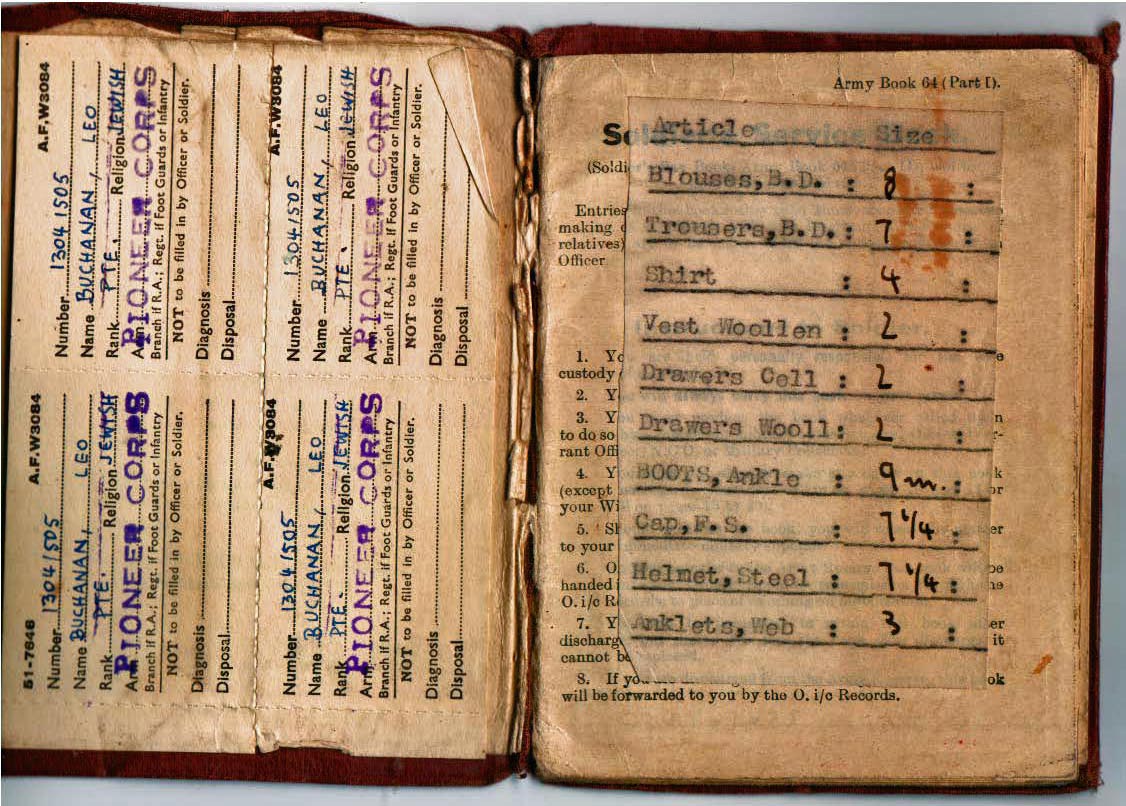 A.F.W3084
Number 13041505
Name BUCHANAN, LEO
Rank PTE. Religion JEWISH
Arm PIONEER CORPS
Branch if R.A.; Regt. if Foot Guards or Infantry
NOT to be filled in by Officer or Soldier.
Diagnosis
Disposal
A.F.W3084
Number 13041505
Name BUCHANAN, LEO
Rank PTE. Religion JEWISH
Arm PIONEER CORPS
Branch if R.A.; Regt. if Foot Guards or Infantry
NOT to be filled in by Officer or Soldier.
Diagnosis
Disposal
A.F.W3084
Number 13041505
Name BUCHANAN, LEO
Rank PTE. Religion JEWISH
Arm PIONEER CORPS
Branch if R.A.; Regt. if Foot Guards or Infantry
NOT to be filled in by Officer or Soldier.
Diagnosis
Disposal
A.F.W3084
Number 13041505
Name BUCHANAN, LEO
Rank PTE. Religion JEWISH
Arm PIONEER CORPS
Branch if R.A.; Regt. if Foot Guards or Infantry
NOT to be filled in by Officer or Soldier.
Diagnosis
Disposal
Army Book 64 (Part I).
Article Size
Blouses,B.D. : 8 :
Trousers,B.D. : 7 :
Shirt : 4 :
Vest Woollen : 2 :
Drawers Cell : 2 :
Drawers Wooll: 2 :
BOOTS,Ankle : 9 m. :
Cap,F.S. : 7 1/4 :
Helmet,Steel : 7 1/4 :
Anklets,Web : 3 :
Entries
making
relatives)
Officer
1.
custody
2.
3.
to do so
rant
4.
(except
your
5.
to your
6.
handed
O. i/c
7.
discharg it
cannot
8. If you
will be forwarded to you by the O. i/c Records.